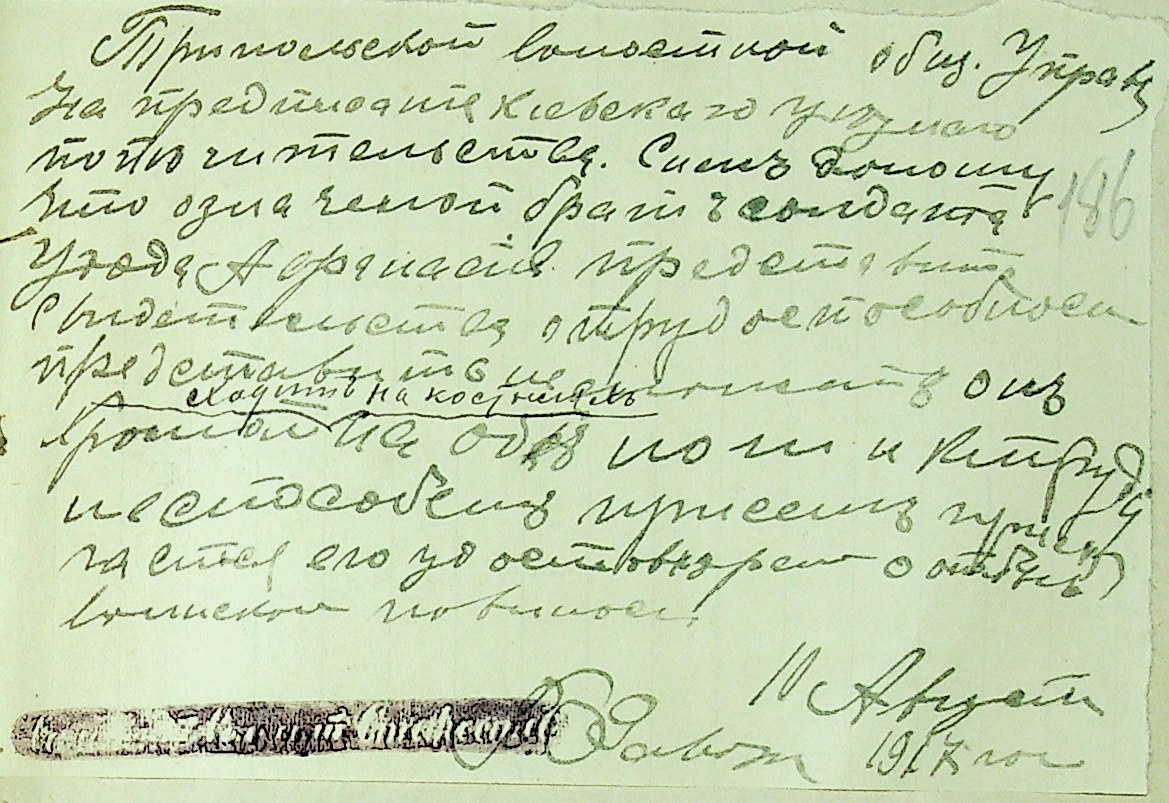 Трипольской волостной общ. Управ
На предписание киевскаго уезнаго
попечительства. Симъ доношу
что означеной братъ солдата
Ухода Афанасия представить
свидетельства о трудоспособности
представить не можетъ онъ
ходитъ на костыляхъ
хромой на обе ноги и ктруду
неспособенъ присемъ прила
гается его удостоверен о отбыв
воинской повиност
186
10 Август
1917 год